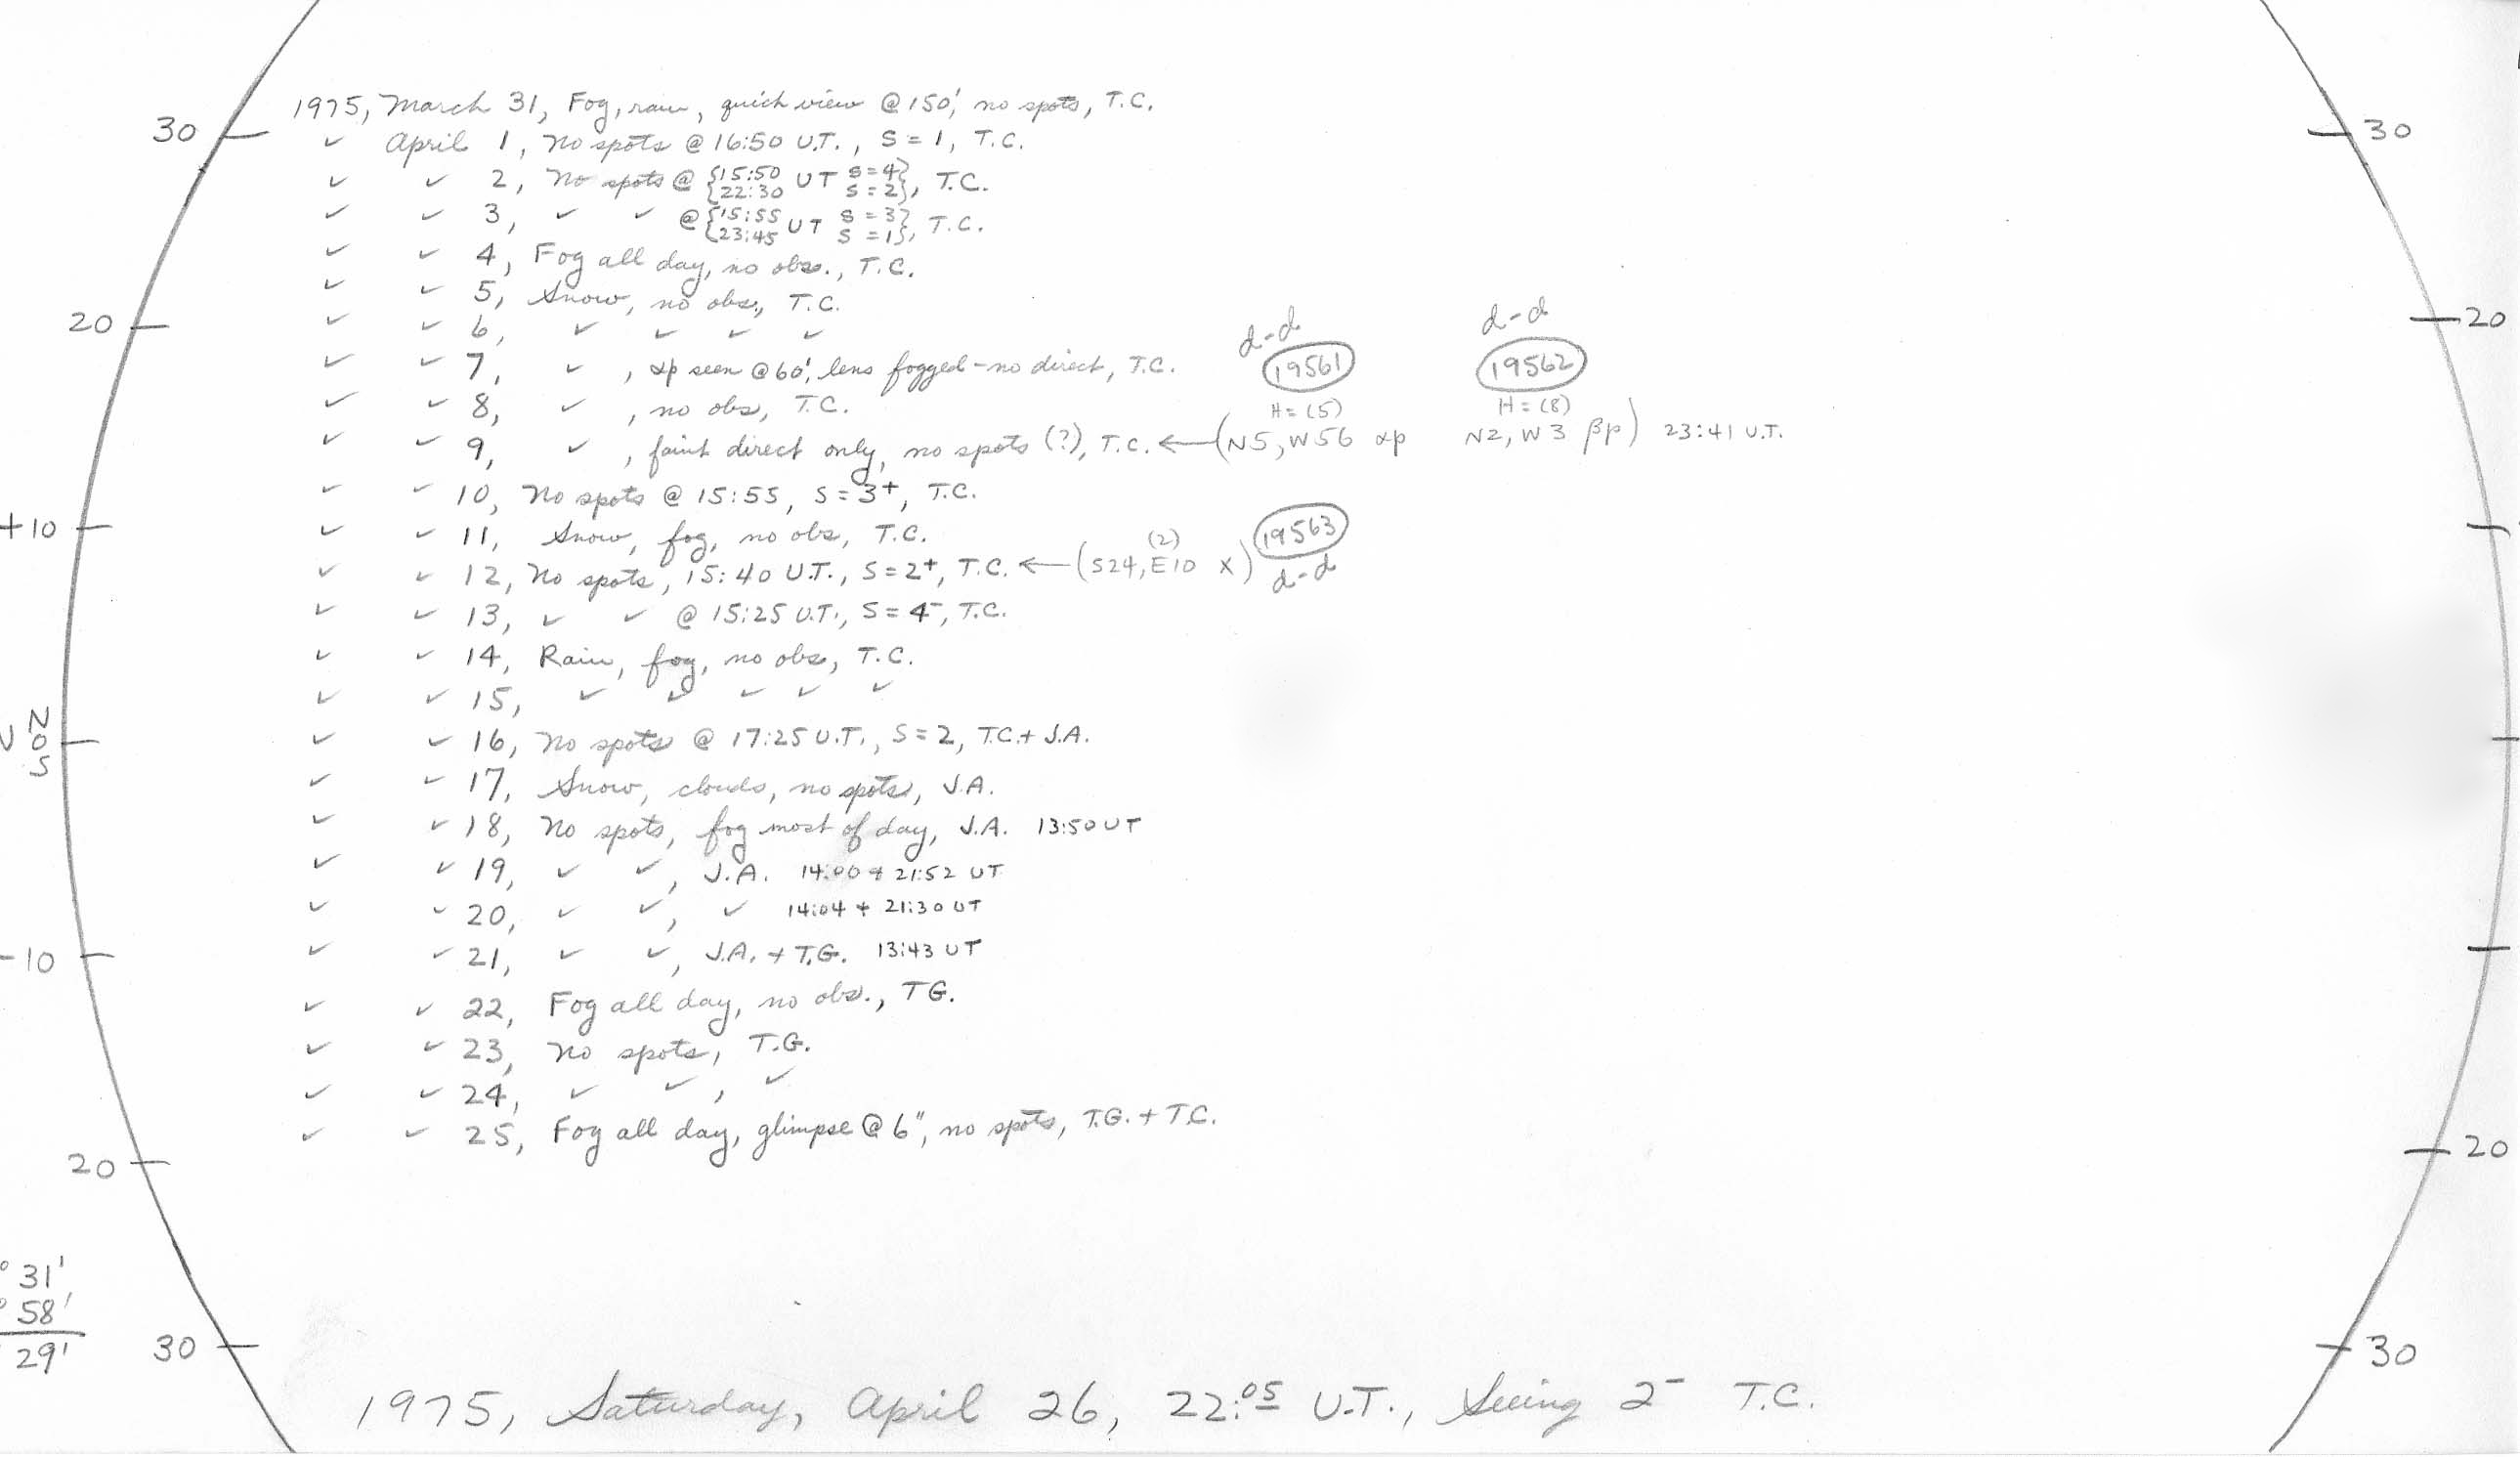 1975, March 31, Fog, rain, quick view @ 150', no spots, T.C.
30 30
✓ April 1, No spots @ 16:50 U.T., S = 1, T.C.
✓ ✓ 2, No spots @ {15:50 22:30 UT S=4 S=2}, T.C.
✓ ✓ 3, ✓ ✓ @ {15:55 23:45 UT S=3 S=1}, T.C.
✓ ✓ 4, Fog all day, no obs., T.C.
✓ ✓ 5, Snow, no obs., T.C.
20 ✓ ✓ 6, ✓ ✓ ✓ ✓ d-d d-d 20
✓ ✓ 7, ✓, αp seen @ 60', lens fogged - no direct, T.C. 19561 19562
✓ ✓ 8, ✓, no obs, T.C. H=(5) H=(8)
✓ ✓ 9, ✓, faint direct only, no spots (?), T.C. ← (N5, W56 αp N2, W3 βp) 23:41 U.T.
✓ ✓ 10, No spots @ 15:55, S=3+, T.C.
+10 ✓ ✓ 11, Snow, fog, no obs, T.C.
✓ ✓ 12, No spots, 15:40 U.T., S=2+, T.C. ← (S24, E10 (2) X) 19563 d-d
✓ ✓ 13, ✓ ✓ @ 15:25 U.T., S=4-, T.C.
✓ ✓ 14, Rain, fog, no obs, T.C.
✓ ✓ 15, ✓ ✓ ✓ ✓ ✓
N
0
S
✓ ✓ 16, No spots @ 17:25 U.T., S=2, T.C.+ J.A.
✓ ✓ 17, Snow, clouds, no spots, J.A.
✓ ✓ 18, No spots, fog most of day, J.A. 13:50 UT
✓ ✓ 19, ✓ ✓, J.A. 14:00 + 21:52 UT
✓ ✓ 20, ✓ ✓, ✓ 14:04 + 21:30 UT
-10 ✓ ✓ 21, ✓ ✓, J.A. + T.G. 13:43 UT
✓ ✓ 22, Fog all day, no obs., TG.
✓ ✓ 23, No spots, T.G.
✓ ✓ 24, ✓ ✓, ✓
✓ ✓ 25, Fog all day, glimpse @ 6", no spots, T.G. + T.C.
20 20
° 31'
° 58'
29'
30 30
1975, Saturday, April 26, 22:05 U.T., Seeing 2- T.C.